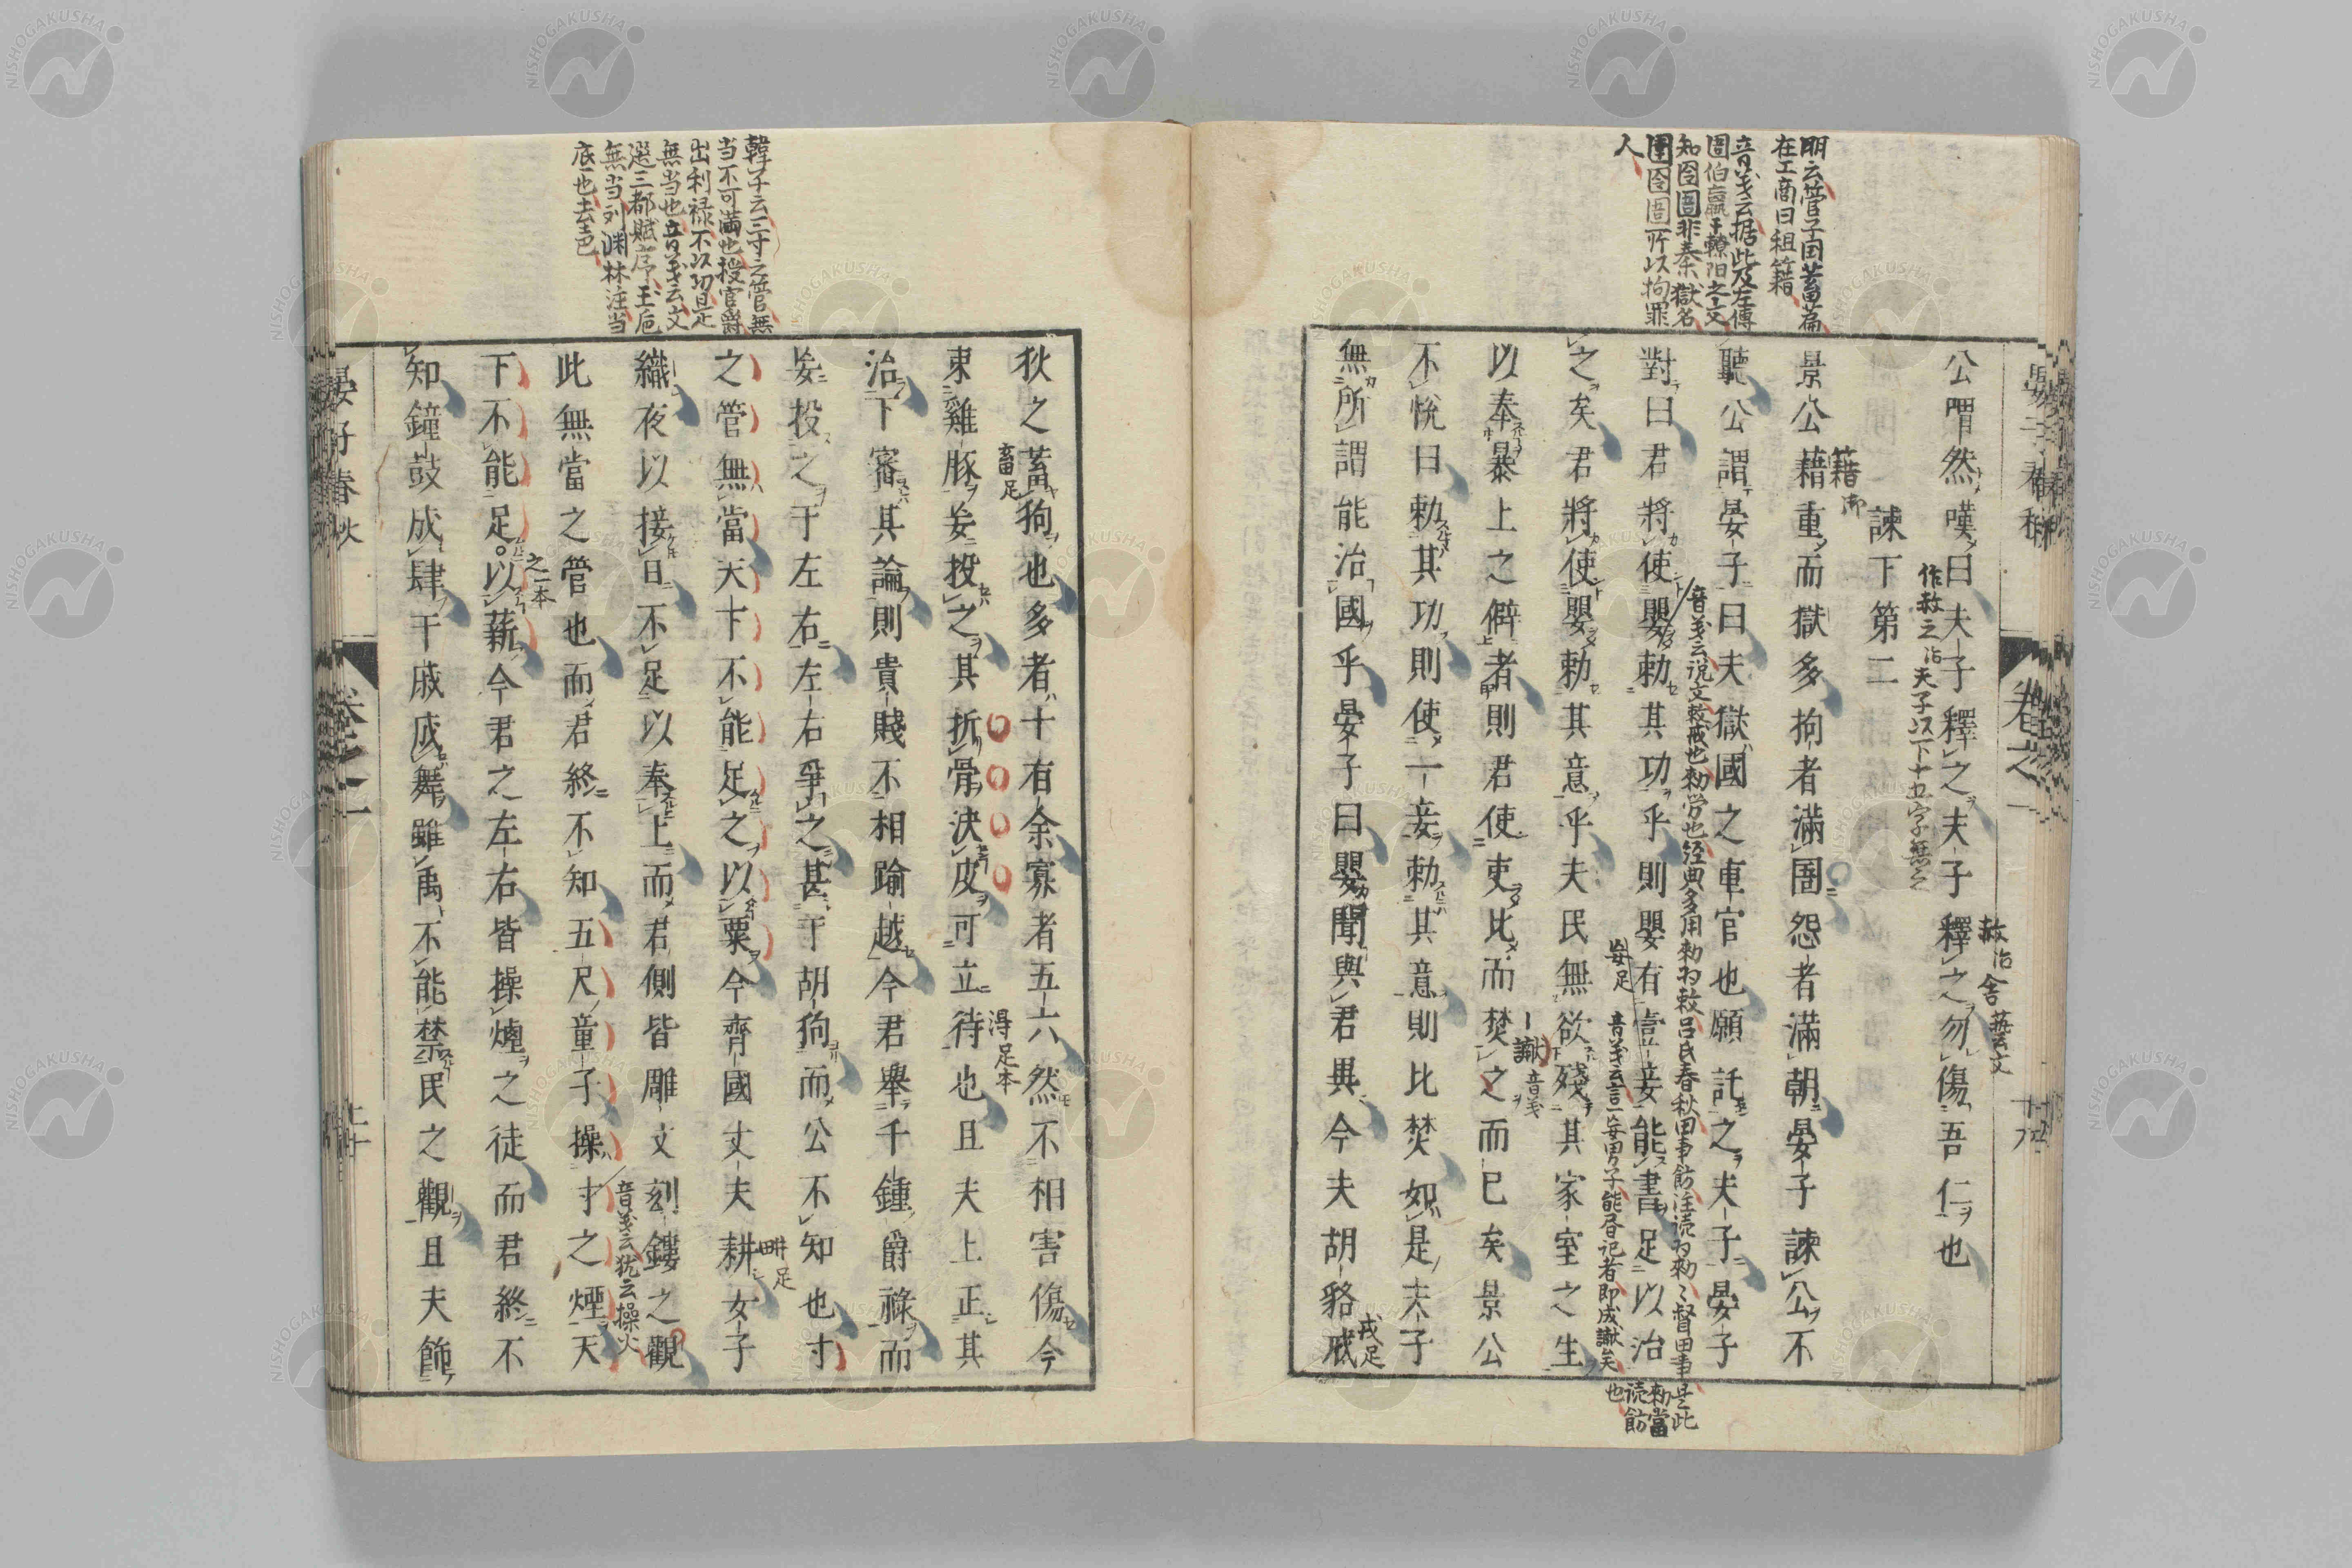 公喟然嘆曰夫子釋之夫子釋之勿傷吾仁也
赦治
舍藝文
作赦之治夫子以下十五字無之
諫下第二
景公藉重而獄多拘者滿圄怨者滿朝晏子諫公不
籍
聽公謂晏子曰夫獄國之重官也願託之夫子晏子
音義云説文敕戒也勑労也経典多用勑为敕吕氏春秋田事飭注読为勑々督田事是此
勑當
読飭
也
對曰君將使嬰勅其功乎則嬰有壹妾能書足以治
妄足
音義云言一妄男子能昏记者即成讞矣
之矣君將使嬰勅其意乎夫民無欲殘其家室之生
以奉暴上之僻者則君使吏比而焚之而已矣景公
讞音義
不悅曰勅其功則使一妾勅其意則比焚如是夫子
無所謂能治國乎晏子曰嬰聞與君異今夫胡貉戎
戎足
明云管子国蓄萹
在工商曰租籍
音義云据此及左傳
圄伯嬴于轑阳之文
知囹圄非秦獄名
圉囹圄所以拘罪
人
晏子春秋
卷之一
狄之蓄狗也多者十有余寡者五六然不相害傷今
畜足
束雞豚妄投之其折骨決皮可立待也且夫上正其
得足本
治下審其論則貴賤不相踰越今君舉千鍾爵祿而
妄投之于左右左右爭之甚于胡狗而公不知也寸
之管無當天下不能足之以粟今齊國丈夫耕女子
畊足
織夜以接日不足以奉上而君側皆雕文刻鏤之觀
音義云犹云操火
此無當之管也而君終不知五尺童子操寸之煙天
下不能足以薪今君之左右皆操煙之徒而君終不
之一本
知鐘鼓成肆干戚成舞雖禹不能禁民之觀且夫飾
韓子云三寸之管無
当不可滿也授官爵
出利禄不以功是
無当也音義云文
選三都賦序玉卮
無当刘渊林注当
底也去声
晏子春秋
卷之一
NISHOGAKUSHA